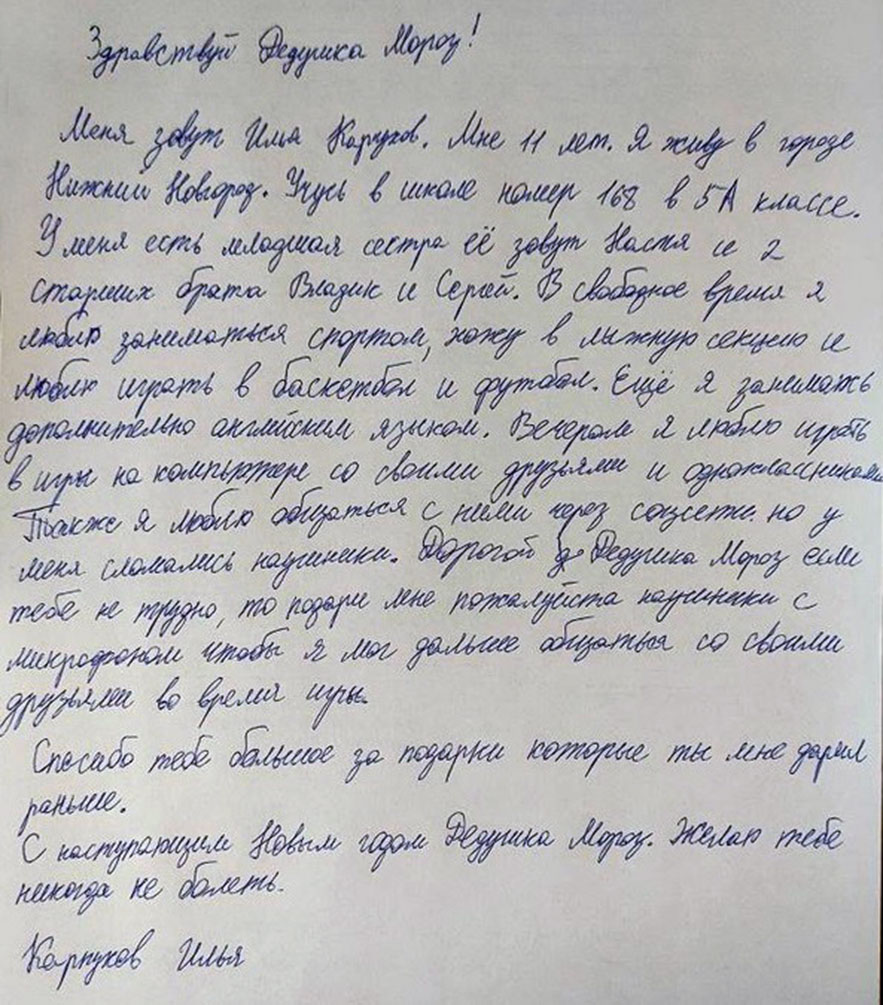 Здравствуй Дедушка Мороз!
Меня зовут Илья Карпухов. Мне 11 лет. Я живу в городе
Нижний Новгород. Учусь в школе номер 168 в 5А классе.
У меня есть младшая сестра её зовут Настя и 2
старших брата Владик и Сергей. В свободное время я
люблю заниматься спортом, хожу в лыжную секцию и
люблю играть в баскетбол и футбол. Ещё я занимаюсь
дополнительно английским языком. Вечером я люблю играть
в игры на компьютере со своими друзьями и одноклассниками
Также я люблю общаться с ними через соцсети. но у
меня сломались наушники. Дорогой Дедушка Мороз если
тебе не трудно, то подари мне пожалуйста наушники с
микрофоном чтобы я мог дальше общаться со своими
друзьями во время игры.
Спасибо тебе большое за подарки которые ты мне дарил
раньше.
С наступающим Новым годом Дедушка Мороз. Желаю тебе
никогда не болеть.
Карпухов Илья